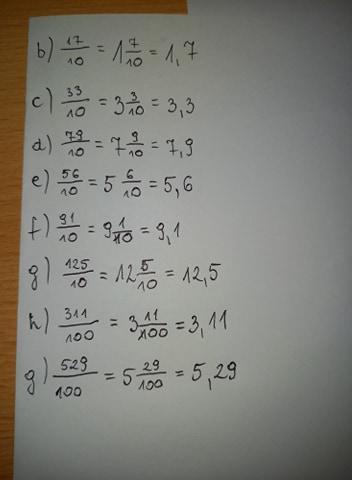 b) 17/10 = 1 7/10 = 1,7
c) 33/10 = 3 3/10 = 3,3
d) 79/10 = 7 9/10 = 7,9
e) 56/10 = 5 6/10 = 5,6
f) 91/10 = 9 1/10 = 9,1
g) 125/10 = 12 5/10 = 12,5
h) 311/100 = 3 11/100 = 3,11
g) 529/100 = 5 29/100 = 5,29